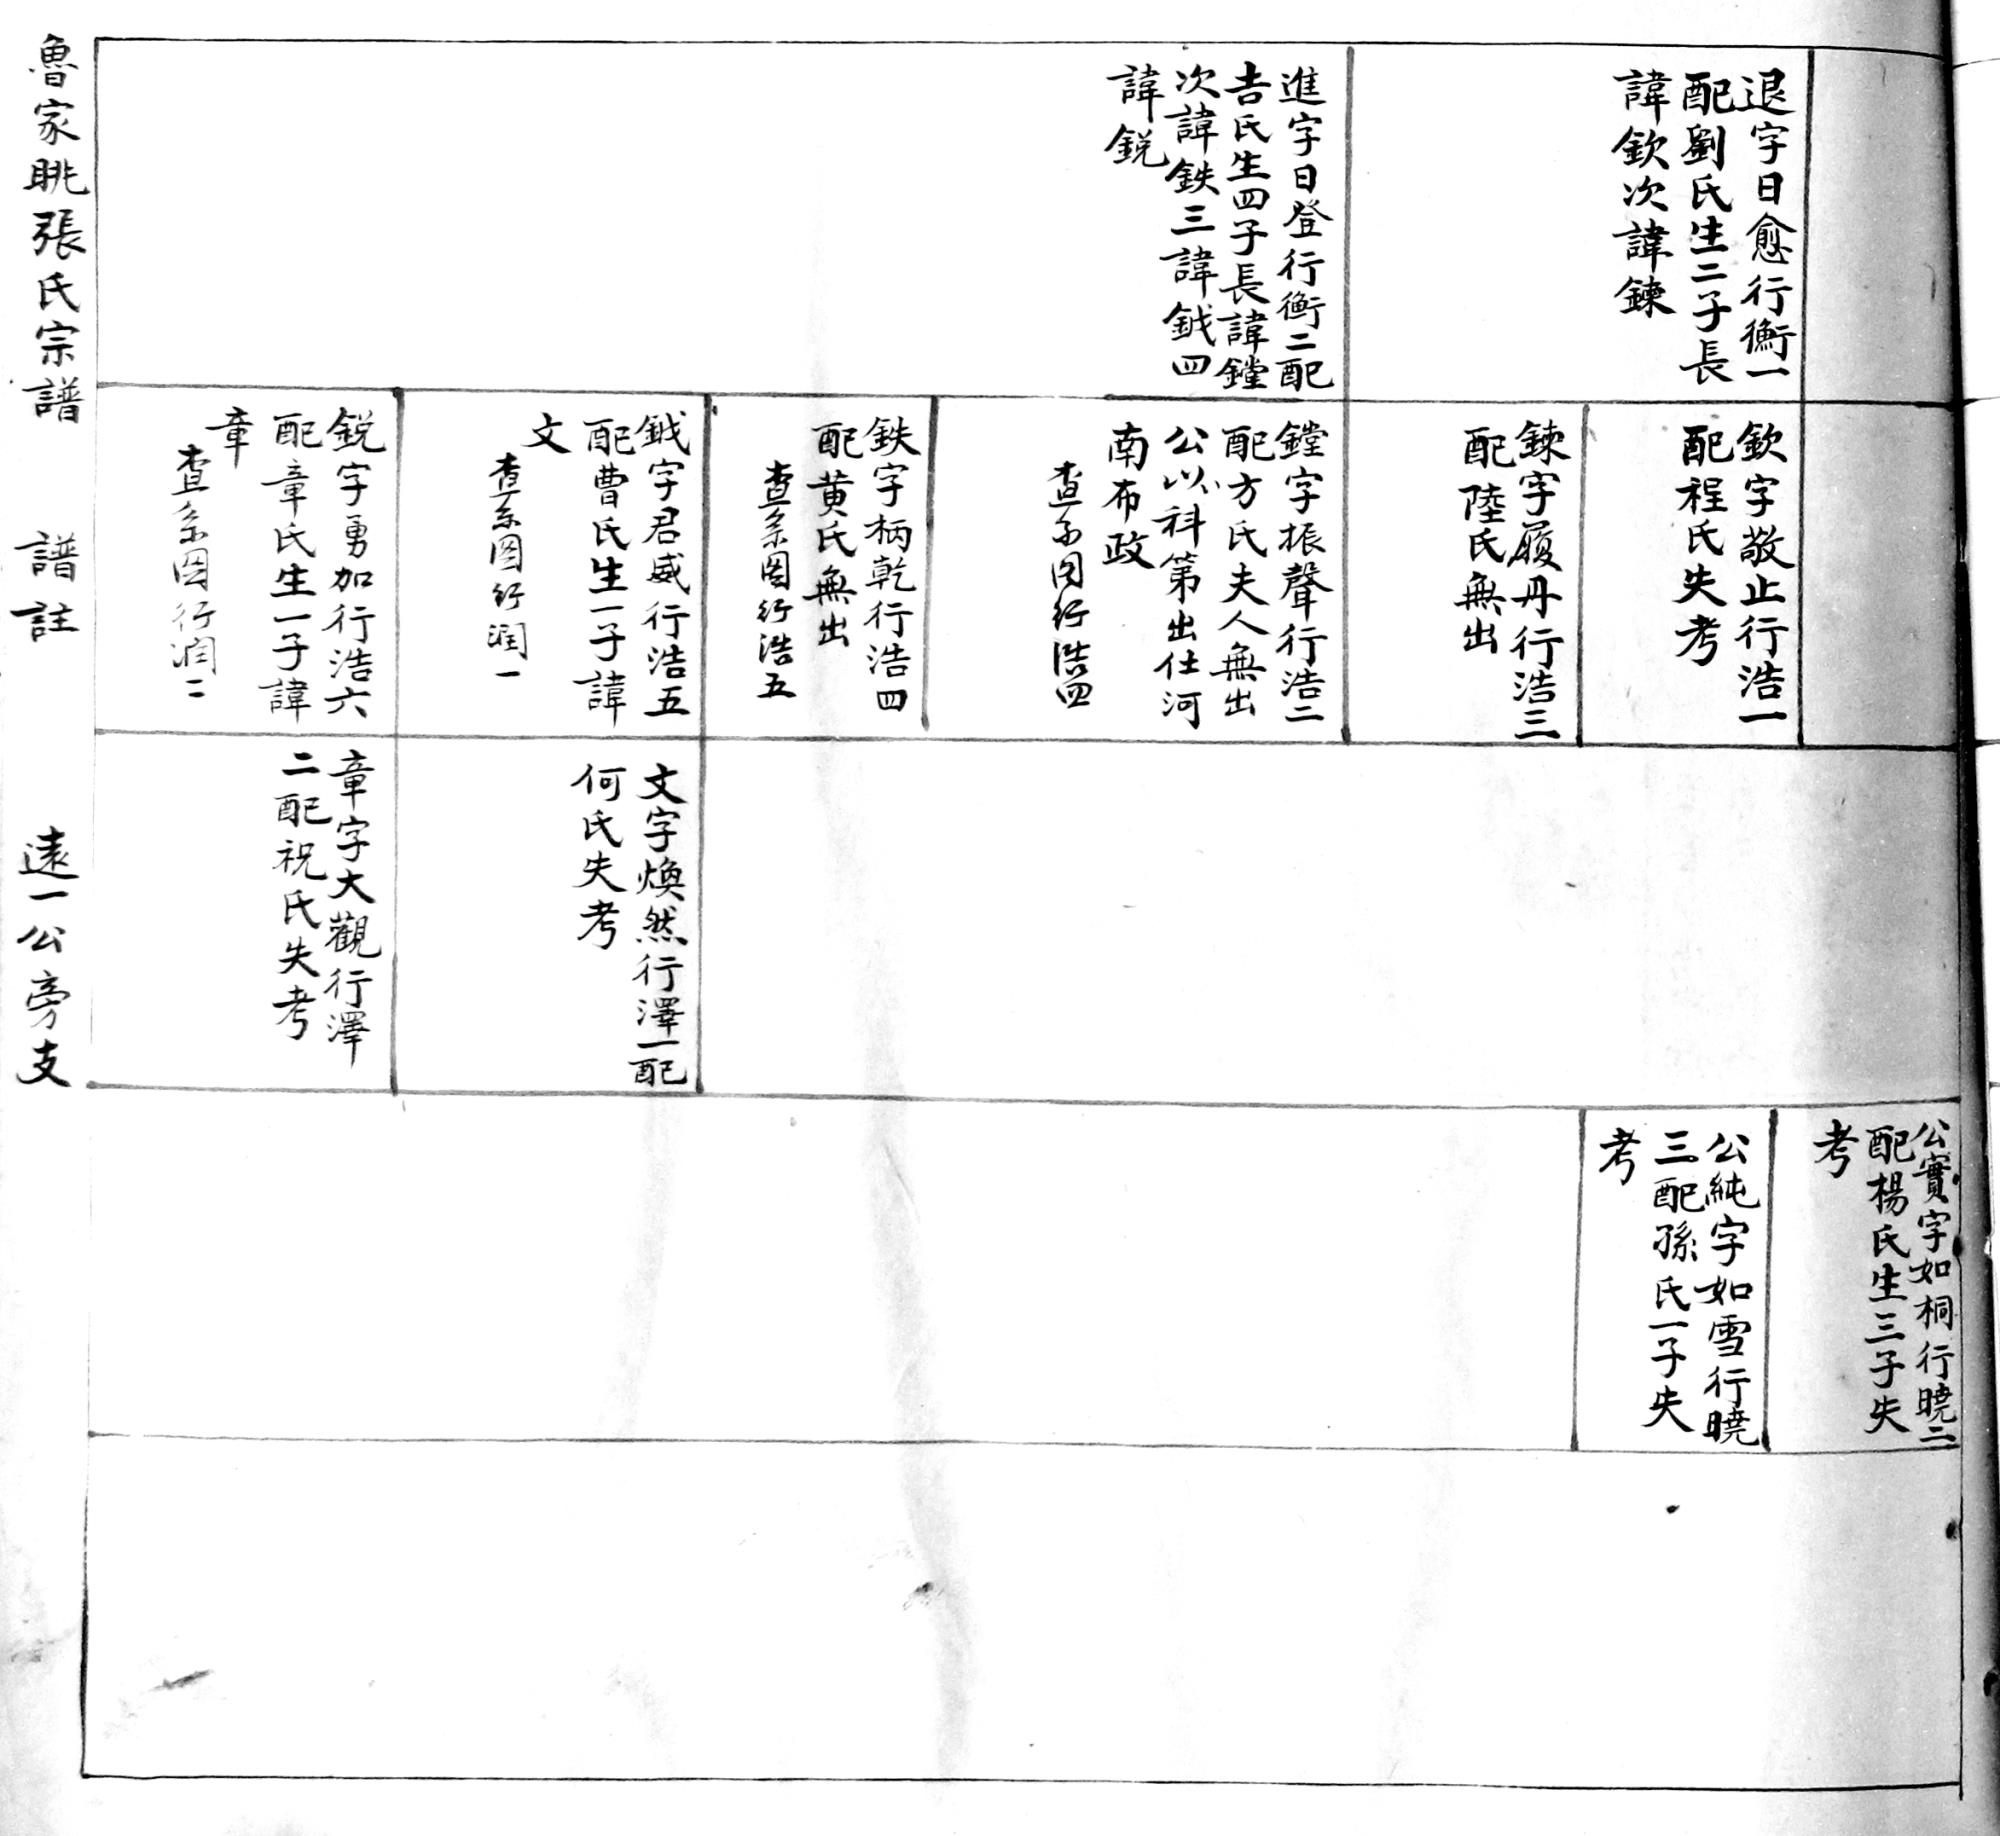 退字日愈行衡一
配劉氏生二子長
諱欽次諱鍊
進字日登行衡二配
吉氏生四子長諱鏜
次諱鉄三諱鉞四
諱銳
欽字敬止行浩一
配程氏失考
鍊字履丹行浩三
配陸氏無出
鏜字振聲行浩二
配方氏夫人無出
公以科第出仕河
南布政
查系図行浩四
鉄字柄乾行浩四
配黃氏無出
查系図行浩五
鉞字君威行浩五
配曹氏生一子諱
文
查系図行润一
銳字勇加行浩六
配章氏生一子諱
章
查系図行润二
文字煥然行澤一配
何氏失考
章字大觀行澤
二配祝氏失考
公實字如桐行曉二
配楊氏生三子失
考
公純字如雪行曉
三配孫氏一子失
考
魯家眺張氏宗譜 譜註 遠一公旁支